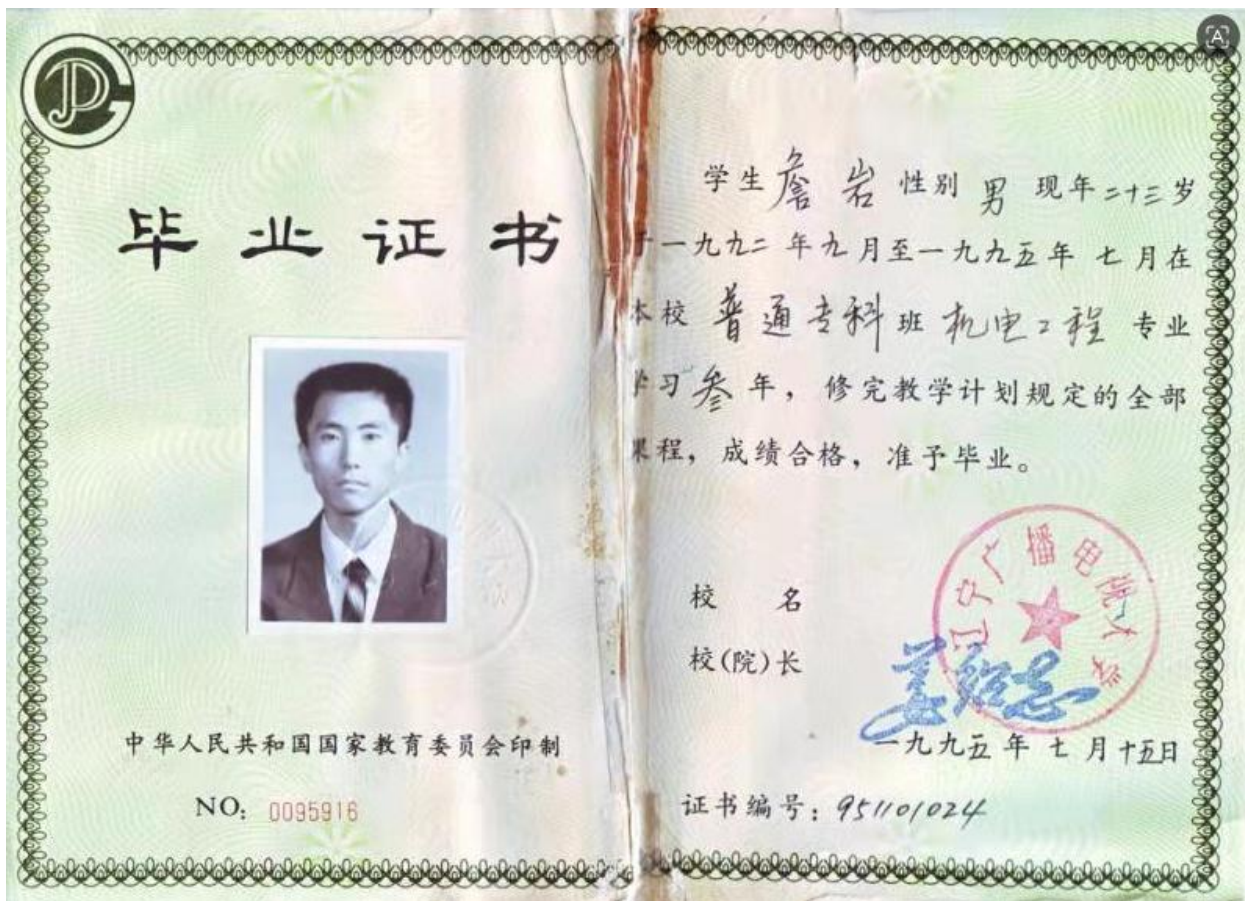 毕业证书
中华人民共和国国家教育委员会印制
NO: 0095916
学生 詹岩 性别 男 现年二十三岁
于一九九二年九月至一九九五年七月在
本校 普通专科班 机电工程 专业
学习叁年，修完教学计划规定的全部
课程，成绩合格，准予毕业。
辽宁广播电视大学
校 名
校(院)长
一九九五年七月十五日
证书编号：951101024